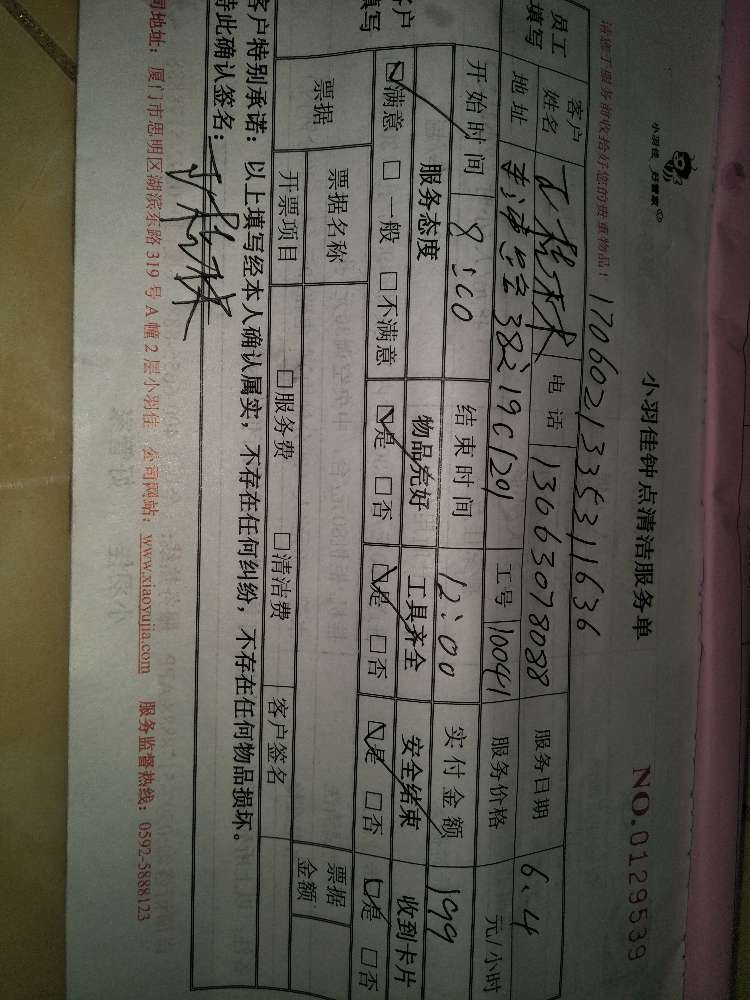 小羽佳 好管家
小羽佳钟点清洁服务单
NO.0129539
请您于服务前收拾好您的贵重物品！
1706021335311636
员工填写
客户姓名
电话 13663078088
服务日期 6.4
地址
38之19C1201
工号 10041
服务价格 元/小时
开始时间 8:00
结束时间 12:00
实付金额 199
客户填写
服务态度 物品完好 工具齐全 安全结束 收到卡片
☑满意 □一般 □不满意 ☑是 □否 ☑是 □否 ☑是 □否 ☑是 □否
票据
票据名称
票据金额
开票项目 □服务费 □清洁费 客户签名
客户特别承诺：以上填写经本人确认属实，不存在任何纠纷，不存在任何物品损坏。
特此确认签名：
司地址：厦门市思明区湖滨东路319号A幢2层小羽佳 公司网站：www.xiaoyujia.com 服务监督热线：0592-5888123